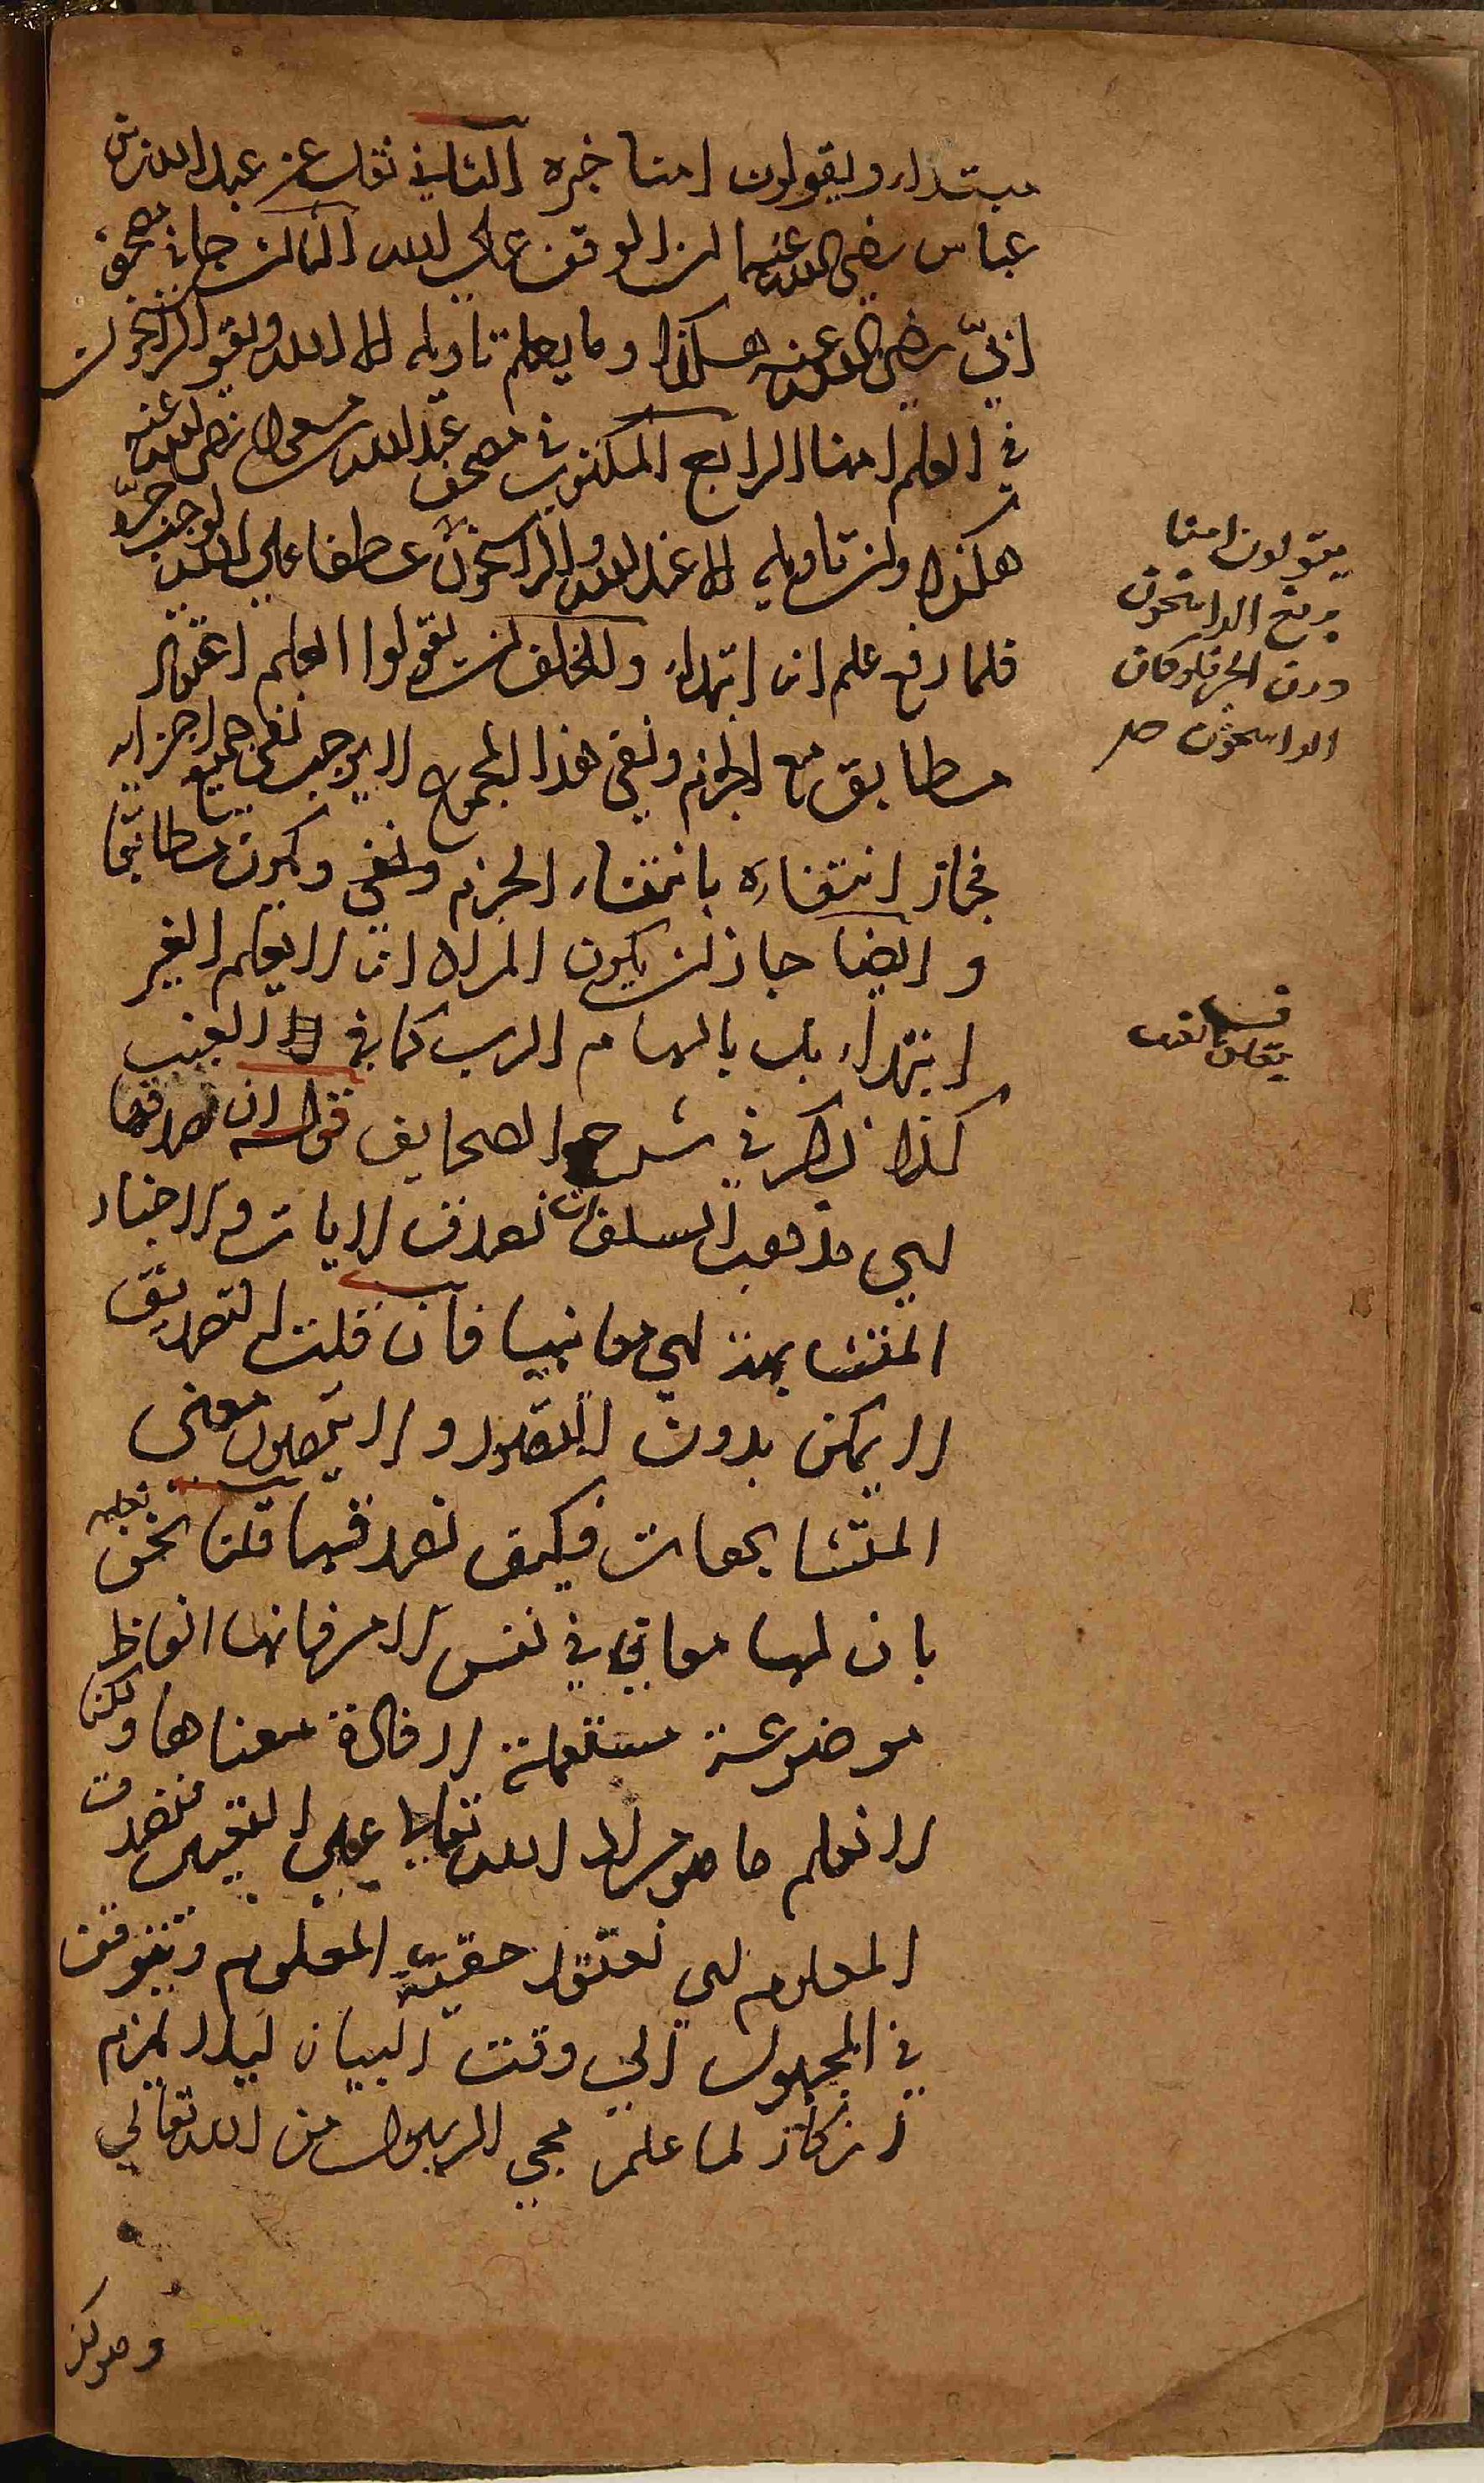 مبتداء ويقولون امنا خبره الثاني نقل عن عبد الله بن
عباس رضي الله عنهما ان الوقف على الله الثالث جاء في مصحف
ابيّ رضي الله عنه هكذا وما يعلم تاويله الا الله ويقول الراسخون
في العلم امنا الرابع المكتوب في مصحف عبد الله مسعود رضي الله عنه
هكذا وان تاويله الا عند الله والراسخون عطفا على الله لوجب جرّه
فلما رفع علم انه ابتداء وللخلف ان يقولوا العلم اعتقاد
مطابق مع الجزم ونفي هذا المجموع لا يوجب نفي جميع اجزايه
فجاز انتفاءه بانتفاء الجزم ونفي ويكون مطابقا
وايضا جاز ان يكون المراد انه لا يعلم الغير
ابتداء بل بالهام الرب كما في الغيب
كذا ذكر في شرح الصحايف قوله ان نصدقها
اي مذهب السلف ان نصدق الايات والاخبار
المتشابهة اي معانيها فان قلت التصديق
لا يمكن بدون التصور ولا يحصل معنى
المتشابهات فكيف نصدقها قلنا نحن نعلم
بان لها معاني في نفس الامر فانها الفاظ
موضوعة مستعملة لافادة معناها ولكن
لا نعلم ما هو مراد الله تعالى على التعيين فنصدق
المعلوم اي نعتقد حقيّة المعلوم ونتوقف
في المجهول الى وقت البيان ليلا يلزم
انكار لما علم مجي الرسول من الله تعالى
وهو كفر
يقولون امنا
برفع الراسخون
دون الجر فلو كان
الراسخون صح